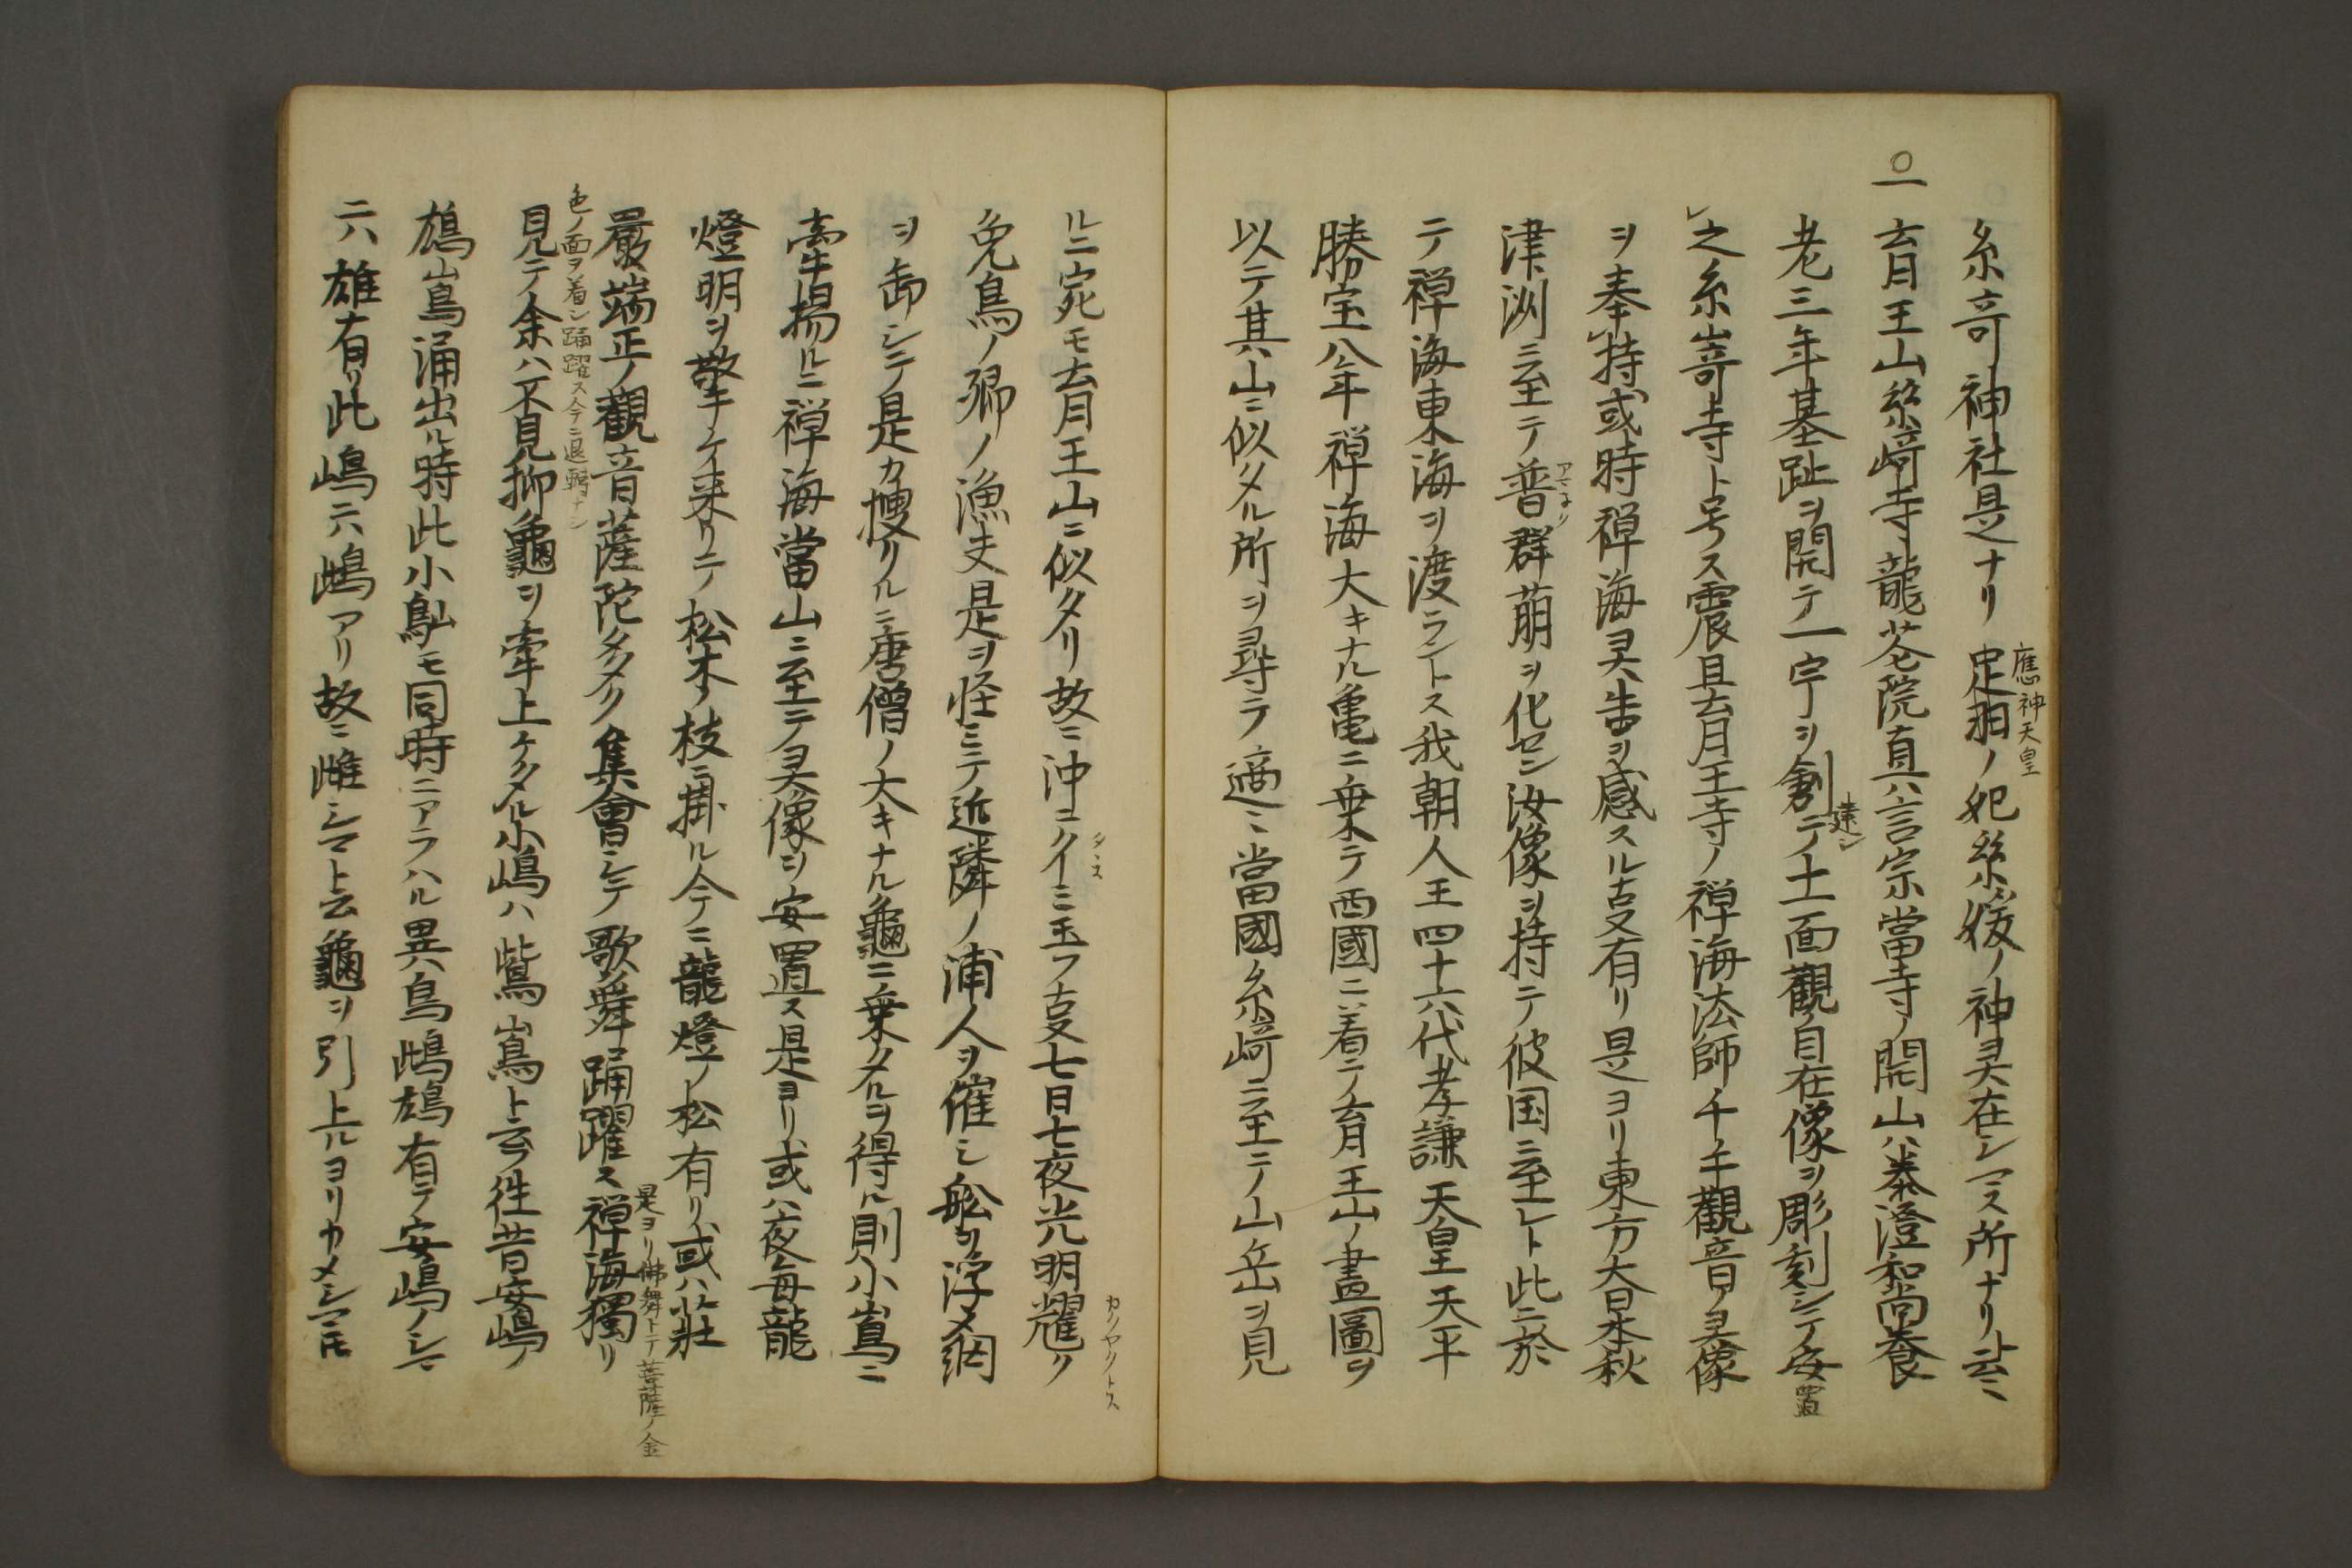 糸﨑神社是ナリ 足羽ノ妃糸媛ノ神灵在シマス所ナリ云ミ
應神天皇
○一
育月王山糸﨑寺龍花院真言宗當寺ノ開山ハ泰澄和尚養
老三年基趾ヲ開テ一宇ヲ創テ十一面觀自在像ヲ彫刻シテ安置
建シ
之糸﨑寺ト号ス震旦育月王寺ノ禅海法師千手觀音ノ灵像
ヲ奉持或時禅海灵告ヲ感スル㕝有リ是ヨリ東方大日本秋
津洲ニ至テ普群萠ヲ化セン汝像ヲ持テ彼国ニ至レト此ニ於
アマネク
テ禅海東海ヲ渡ラントス我朝人王四十六代孝謙天皇天平
勝宝八年禅海大キナル亀ニ乗テ西國ニ着テ育月王山ノ畫圖ヲ
以テ其山ニ似タル所ヲ尋テ適ミ當國糸﨑ニ至テノ山岳ヲ見
ルニ宛モ育月王山ニ似タリ故ニ沖コクイミ玉フ㕝七日七夜光明耀ク
カゝヤクトス
免鳥ノ郷ノ漁夫是ヲ怪ミテ近隣ノ浦人ヲ催シ舩ヲ浮メ網
ヲ卸シテ是カ捜リルニ唐僧ノ大キナル龜ニ乗タルヲ得ル則小嶌ニ
牽揚ルニ禅海當山ニ至テ灵像ヲ安置ス是ヨリ或ハ夜毎龍
燈明ヲ擎ケ来リテ松木ノ枝ニ掛ル今ニ龍燈ノ松有リ或ハ莊
嚴端正ノ觀音薩陀多ク集會シテ歌舞踊躍ス禅海獨リ
是ヨリ佛舞トテ菩薩ノ金
色ノ面ヲ着シ踊躍ス今ニ退轉ナシ
見テ余ハ不見抑龜ヲ牽上ケタル小嶋ハ鴜嶌ト云往昔安嶋ノ
鴆嶌涌出ル時此小嶋モ同時ニアラハル異鳥鴟鴆有テ安嶋ノシマ
ニハ雄有リ此嶋ニハ鴟アリ故ニ雌シマト云龜ヲ引上ルヨリカメシマ𪜈